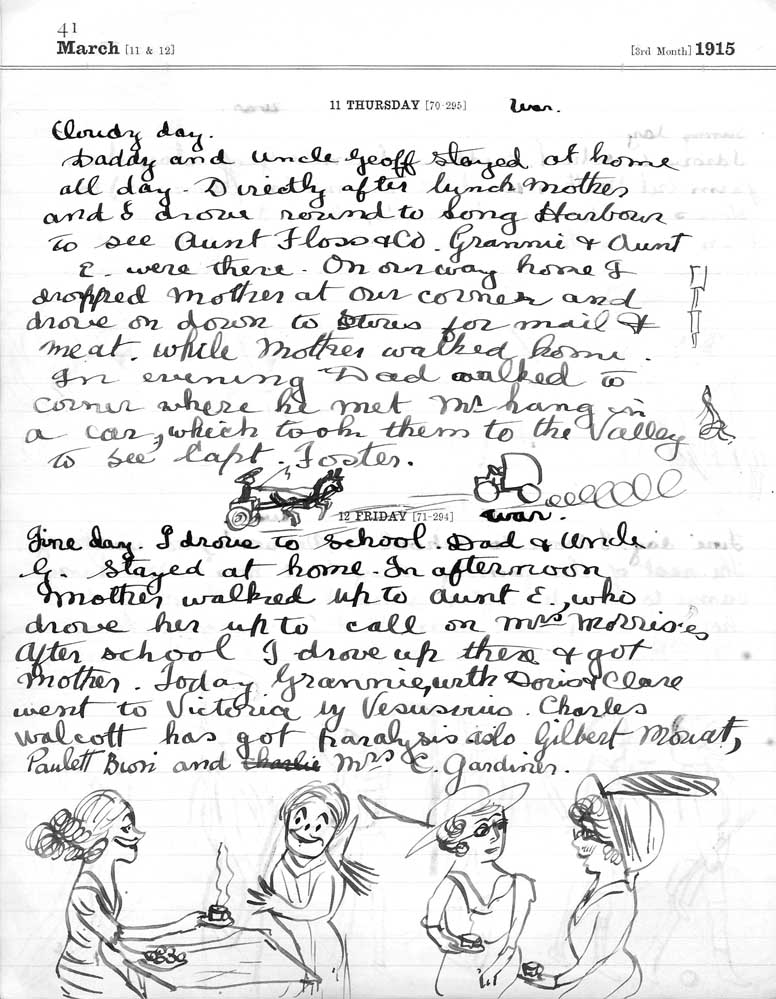 41
March [11 & 12] [3rd Month] 1915
11 THURSDAY [70-295] War.
Cloudy day.
Daddy and Uncle Geoff stayed at home
all day. Directly after lunch Mother
and I drove round to Long Harbour
to see Aunt Floss & Co. Grannie & Aunt
E. were there. On our way home I
dropped Mother at our corner and
drove on down to Stores for mail &
meat. while Mother walked home.
In evening Dad walked to
corner where he met Mr hang in
a car, which took them to the Valley
to see Capt. Foster.
12 FRIDAY [71-294] War.
Fine day. I drove to school. Dad & Uncle
G. stayed at home. In afternoon
Mother walked up to Aunt E., who
drove her up to call on Mrs Morris's
After school I drove up there & got
Mother. Today Grannie, with Doris & Clare
went to Victoria by Vesusvius. Charles
Walcott has got paralysis also Gilbert Mouat,
Paulett and Charlie Mrs C. Gardiner.